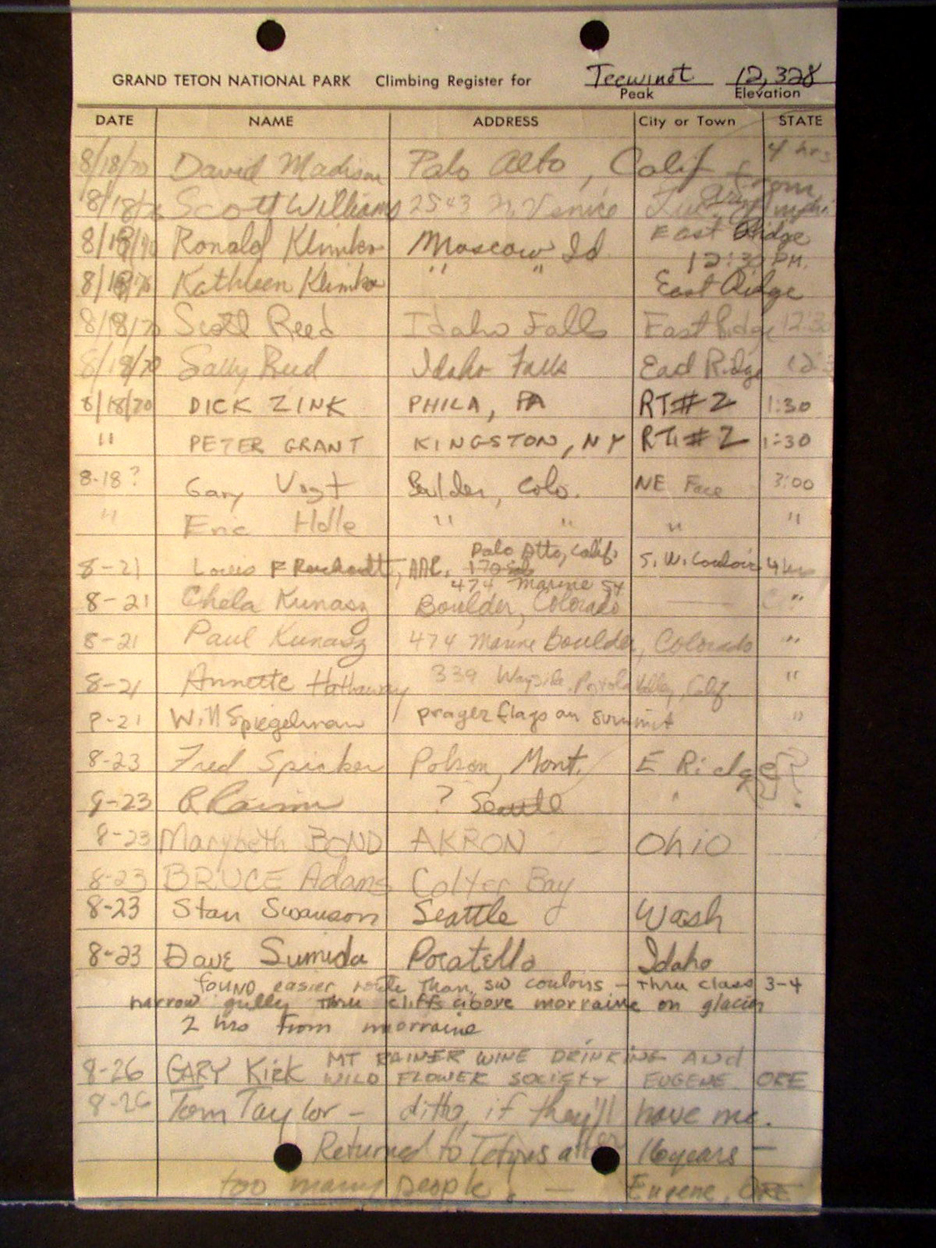 GRAND TETON NATIONAL PARK Climbing Register for Teewinot 12,328
Peak Elevation
DATE NAME ADDRESS City or Town STATE
8/18/70 David Madison Palo Alto, Calif 4 hrs
from
8/18/70 Scott Williams 2543 N. Venice
8/18/70 Ronald Klimko Moscow Id East Ridge
12:30 PM.
8/18/70 Kathleen Klimko " " East Ridge
8/18/70 Scott Reed Idaho Falls East Ridge 12:30
8/18/70 Sally Reed Idaho Falls East Ridge 12:3
8/18/70 DICK ZINK PHILA, PA RT#2 1:30
" PETER GRANT KINGSTON, NY RT#2 1:30
8-18? Gary Vogt Boulder, Colo. NE Face 3:00
" Eric Holle " " " "
Palo Alto, Calif
8-21 Louis F Reichardt, AAC, S.W. Couloir 4 hrs
474 Marine St
8-21 Chela Kunasz Boulder, Colorado "
8-21 Paul Kunasz 474 Marine Boulder, Colorado "
8-21 Annette Hathaway 339 Wayside, Portola Valley, Calif. "
8-21 Will Spiegelman prayer flags on summit "
8-23 Fred Spicker Polson, Mont. E Ridge ?
8-23 ? Seattle "
8-23 Marybeth BOND AKRON Ohio
8-23 BRUCE Adams Colter Bay
8-23 Stan Swanson Seattle Wash
8-23 Dave Sumida Pocatello Idaho
found easier route than sw couloirs - thru class 3-4
narrow gully thru cliffs above morraine on glacier
2 hrs from morraine
MT RAINER WINE DRINKING AND
8-26 GARY Kirk WILD FLOWER SOCIETY EUGENE ORE
8-26 Tom Taylor - ditto, if they'll have me.
Returned to Tetons after 16 years -
too many people! - Eugene, ORE